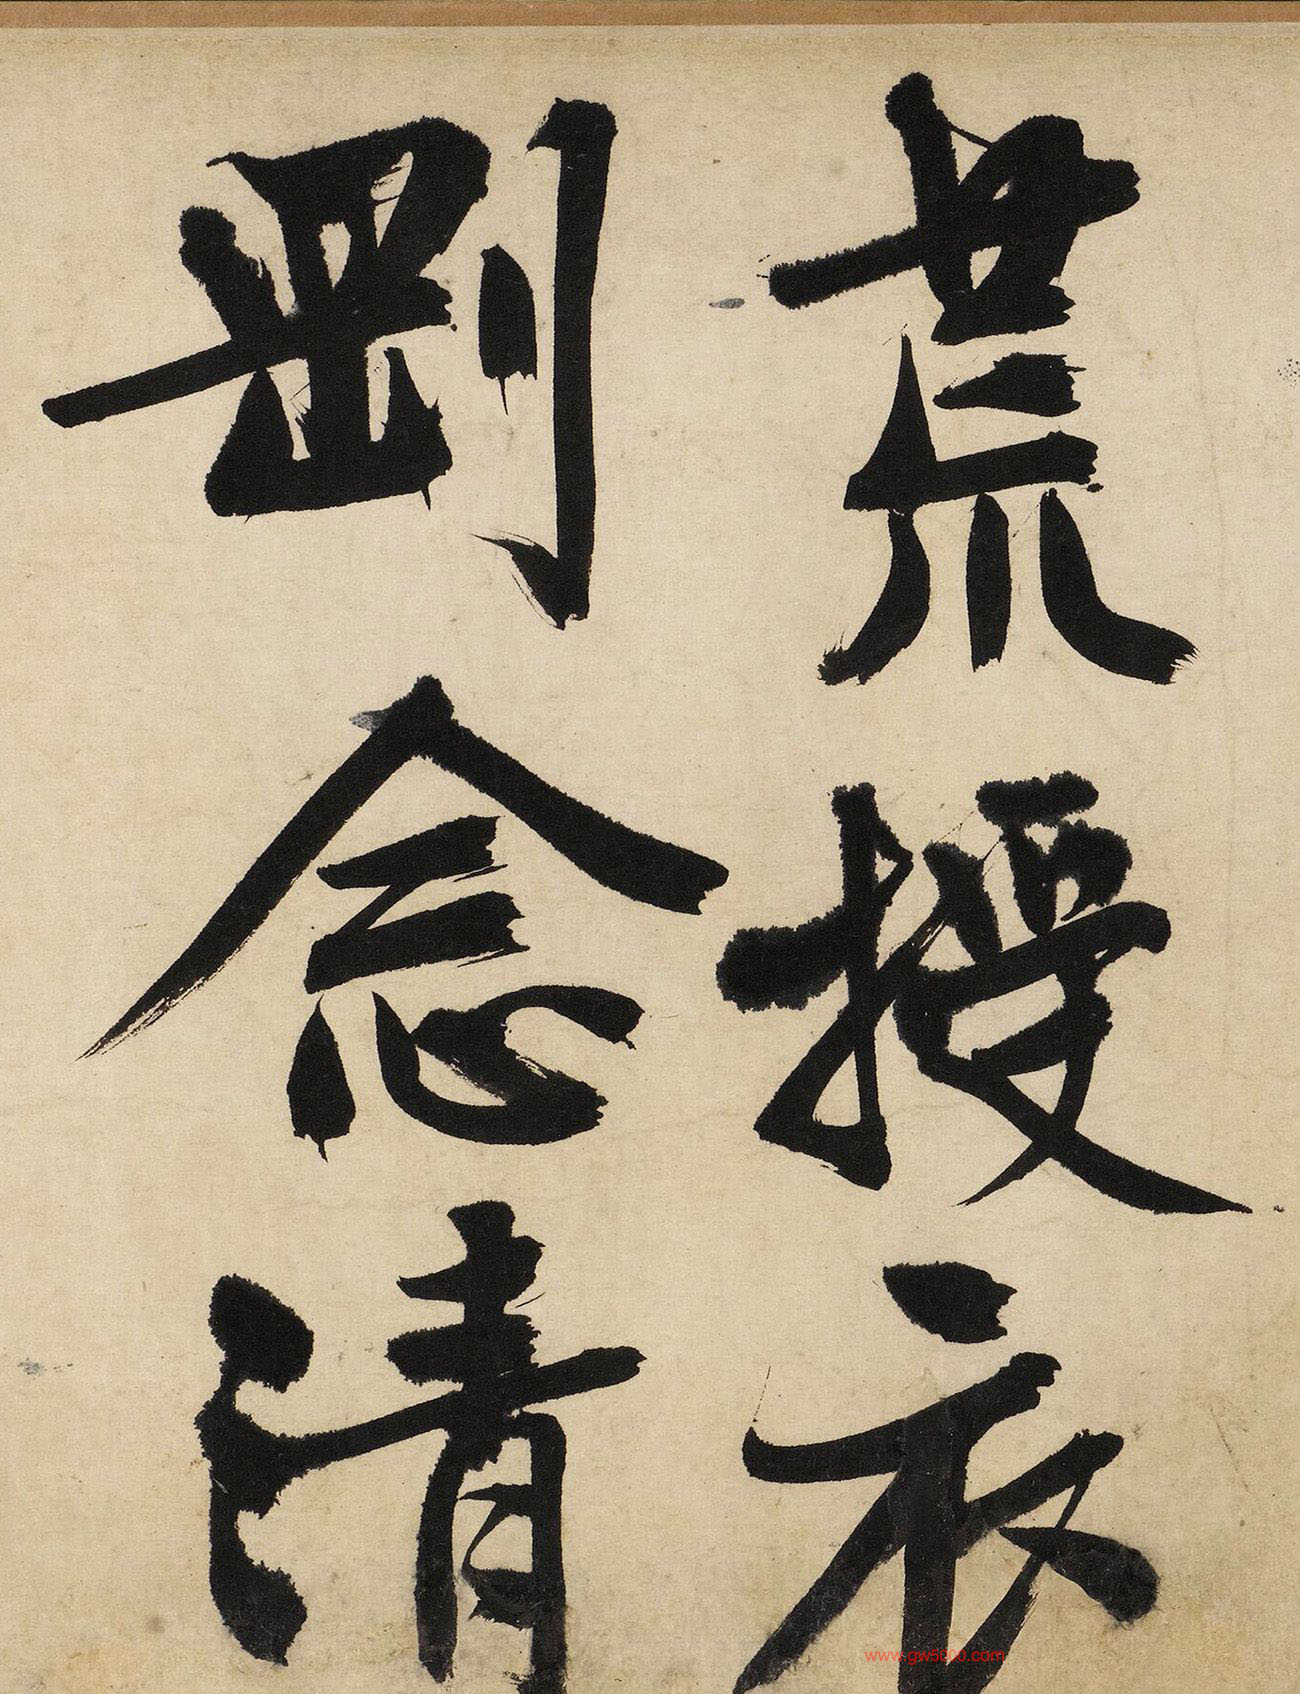 荒授衣
剛念清
www.gw5000.com